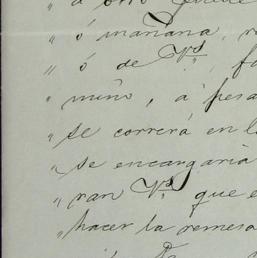 " á otro
" ó mañana,
" ó de Vs
" miño, á pesa
" se correrá en l
" se encargaria
" ran Vs que e
" hacer la remesa